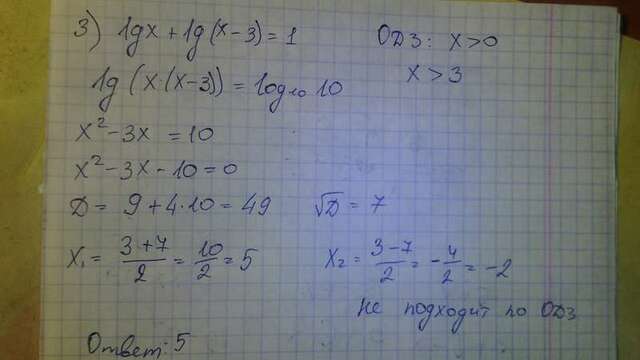 3) lgx + lg(x-3) = 1 ОДЗ: x>0
x>3
lg(x(x-3)) = log₁₀10
x²-3x = 10
x²-3x-10=0
D = 9+4·10 = 49 √D = 7
x₁ = (3+7)/2 = 10/2 = 5 x₂ = (3-7)/2 = -4/2 = -2
не подходит по ОДЗ
Ответ: 5